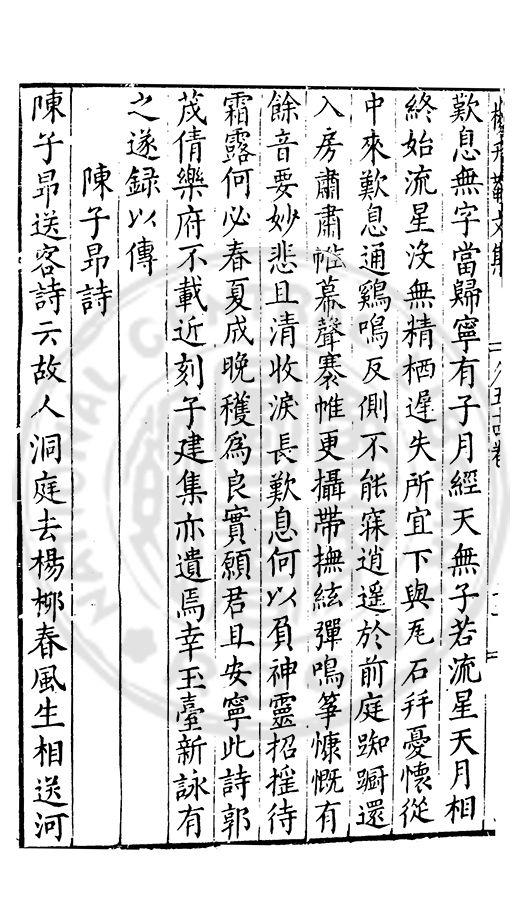 歎息無字當歸寧有子月經天無子若流星天月相
終始流星沒無精栖遲失所宜下與瓦石幷憂懷從
中來歎息通鷄鳴反側不能寐逍遥於前庭踟蹰還
入房肅肅帷幕聲褰帷更攝帶撫絃彈鳴箏慷慨有
餘音要妙悲且清收淚長歎息何以負神靈招揺待
霜露何必春夏成晚穫爲良實願君且安寧此詩郭
茂倩樂府不載近刻子建集亦遺焉幸玉臺新詠有
之遂録以傳
陳子昂詩
陳子昂送客詩云故人洞庭去楊柳春風生相送河